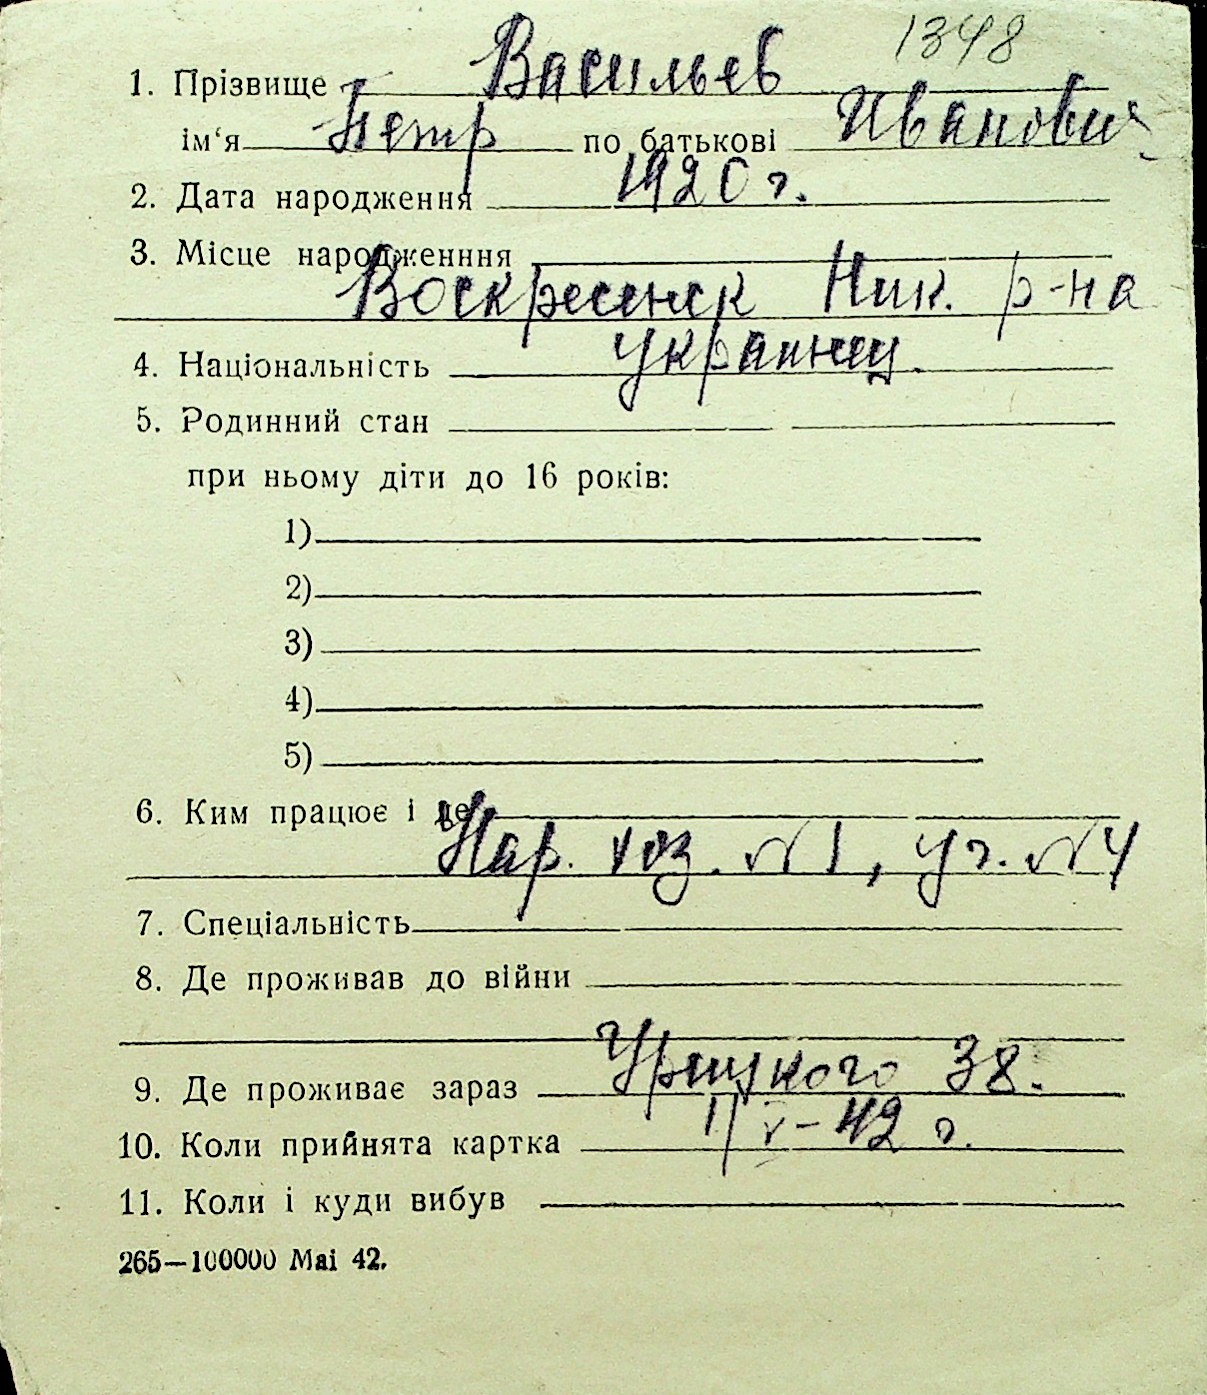 1348
1. Прізвище Васильев
ім‘я Петр по батькові Иванович
2. Дата народження 1920 г.
3. Місце народженння
Воскресенск Ник. р-на
4. Національність украинец.
5. Родинний стан
при ньому діти до 16 років:
1)
2)
3)
4)
5)
6. Ким працює і де
Нар. хоз. №1, уч. №4
7. Спеціальність
8. Де проживав до війни
9. Де проживає зараз Урицкого 38.
10. Коли прийнята картка 1/V-42 г.
11. Коли і куди вибув
265—100000 Mai 42.